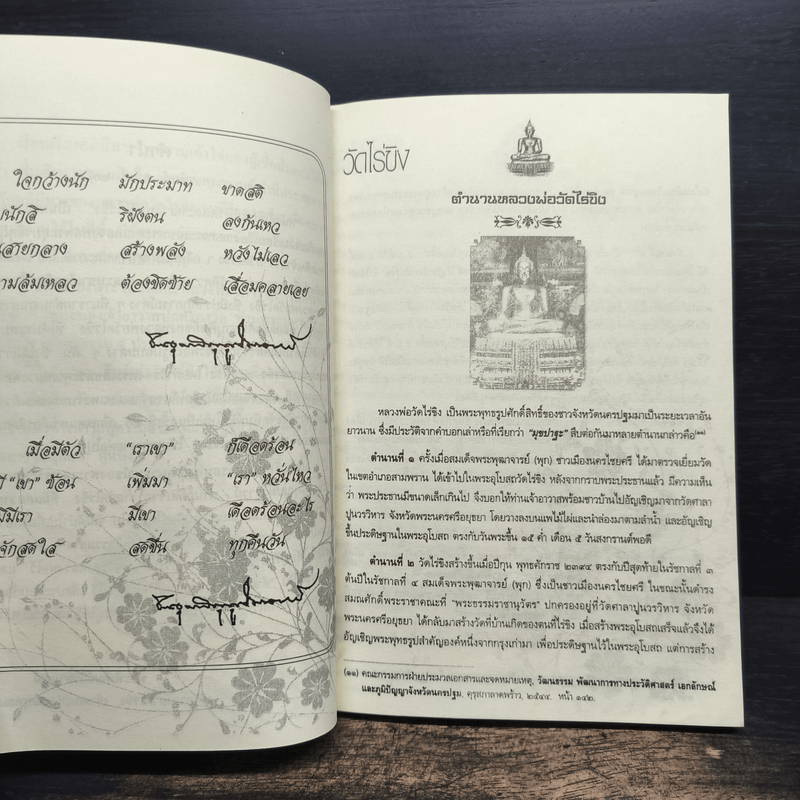 ใจกว้างนัก มักประมาท ขาดสติ
ริฝังตน ลงก้นเหว
สร้างพลัง หวังไม่เลว
ต้องชิดซ้าย เสื่อมคลายเอย
เมื่อมีตัว "เราเขา" ก็เดือดร้อน
"เขา" ซ้อน เพิ่มมา "เรา" หวั่นไหว
มีเขา เดือดร้อนอะไร
สดชื่น ทุกคืนวัน
วัดไร่ขิง
ตำนานหลวงพ่อวัดไร่ขิง
หลวงพ่อวัดไร่ขิง เป็นพระพุทธรูปศักดิ์สิทธิ์ของชาวจังหวัดนครปฐมมาเป็นระยะเวลาอัน
ยาวนาน ซึ่งมีประวัติจากคำบอกเล่าหรือที่เรียกว่า "มุขปาฐะ" สืบต่อกันมาหลายตำนานกล่าวคือ(๑๑)
ตำนานที่ ๑ ครั้งเมื่อสมเด็จพระพุฒาจารย์ (พุก) ชาวเมืองนครไชยศรี ได้มาตรวจเยี่ยมวัด
ในเขตอำเภอสามพราน ได้เข้าไปในพระอุโบสถวัดไร่ขิง หลังจากกราบพระประธานแล้ว มีความเห็น
ว่า พระประธานมีขนาดเล็กเกินไป จึงบอกให้ท่านเจ้าอาวาสพร้อมชาวบ้านไปอัญเชิญมาจากวัดศาลา
ปูนวรวิหาร จังหวัดพระนครศรีอยุธยา โดยวางลงบนแพไม้ไผ่และนำล่องมาตามลำน้ำ และอัญเชิญ
ขึ้นประดิษฐานในพระอุโบสถ ตรงกับวันพระขึ้น ๑๕ ค่ำ เดือน ๕ วันสงกรานต์พอดี
ตำนานที่ ๒ วัดไร่ขิงสร้างขึ้นเมื่อปีกุน พุทธศักราช ๒๓๙๔ ตรงกับปีสุดท้ายในรัชกาลที่ ๓
ต้นปีในรัชกาลที่ ๔ สมเด็จพระพุฒาจารย์ (พุก) ซึ่งเป็นชาวเมืองนครไชยศรี ในขณะนั้นดำรง
สมณศักดิ์พระราชาคณะที่ "พระธรรมราชานุวัตร" ปกครองอยู่ที่วัดศาลาปูนวรวิหาร จังหวัด
พระนครศรีอยุธยา ได้กลับมาสร้างวัดที่บ้านเกิดของตนที่ไร่ขิง เมื่อสร้างพระอุโบสถเสร็จแล้วจึงได้
อัญเชิญพระพุทธรูปสำคัญองค์หนึ่งจากกรุงเก่ามา เพื่อประดิษฐานไว้ในพระอุโบสถ แต่การสร้าง
(๑๑) คณะกรรมการฝ่ายประมวลเอกสารและจดหมายเหตุ, วัฒนธรรม พัฒนาการทางประวัติศาสตร์ เอกลักษณ์
และภูมิปัญญาจังหวัดนครปฐม. คุรุสภาลาดพร้าว, ๒๕๔๔. หน้า ๑๔๒.